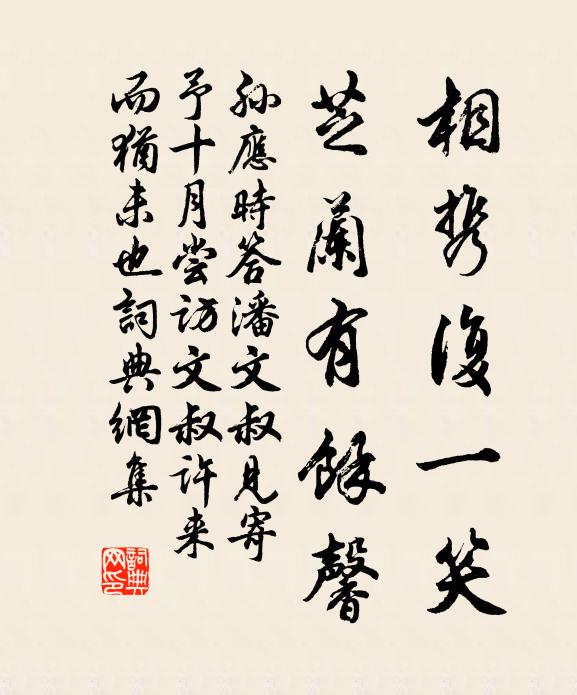 相携復一笑
芝蘭有餘馨
孙應時答潘文叔見寄
予十月尝访文叔许来
而猶未也詞典網集
詞典網印